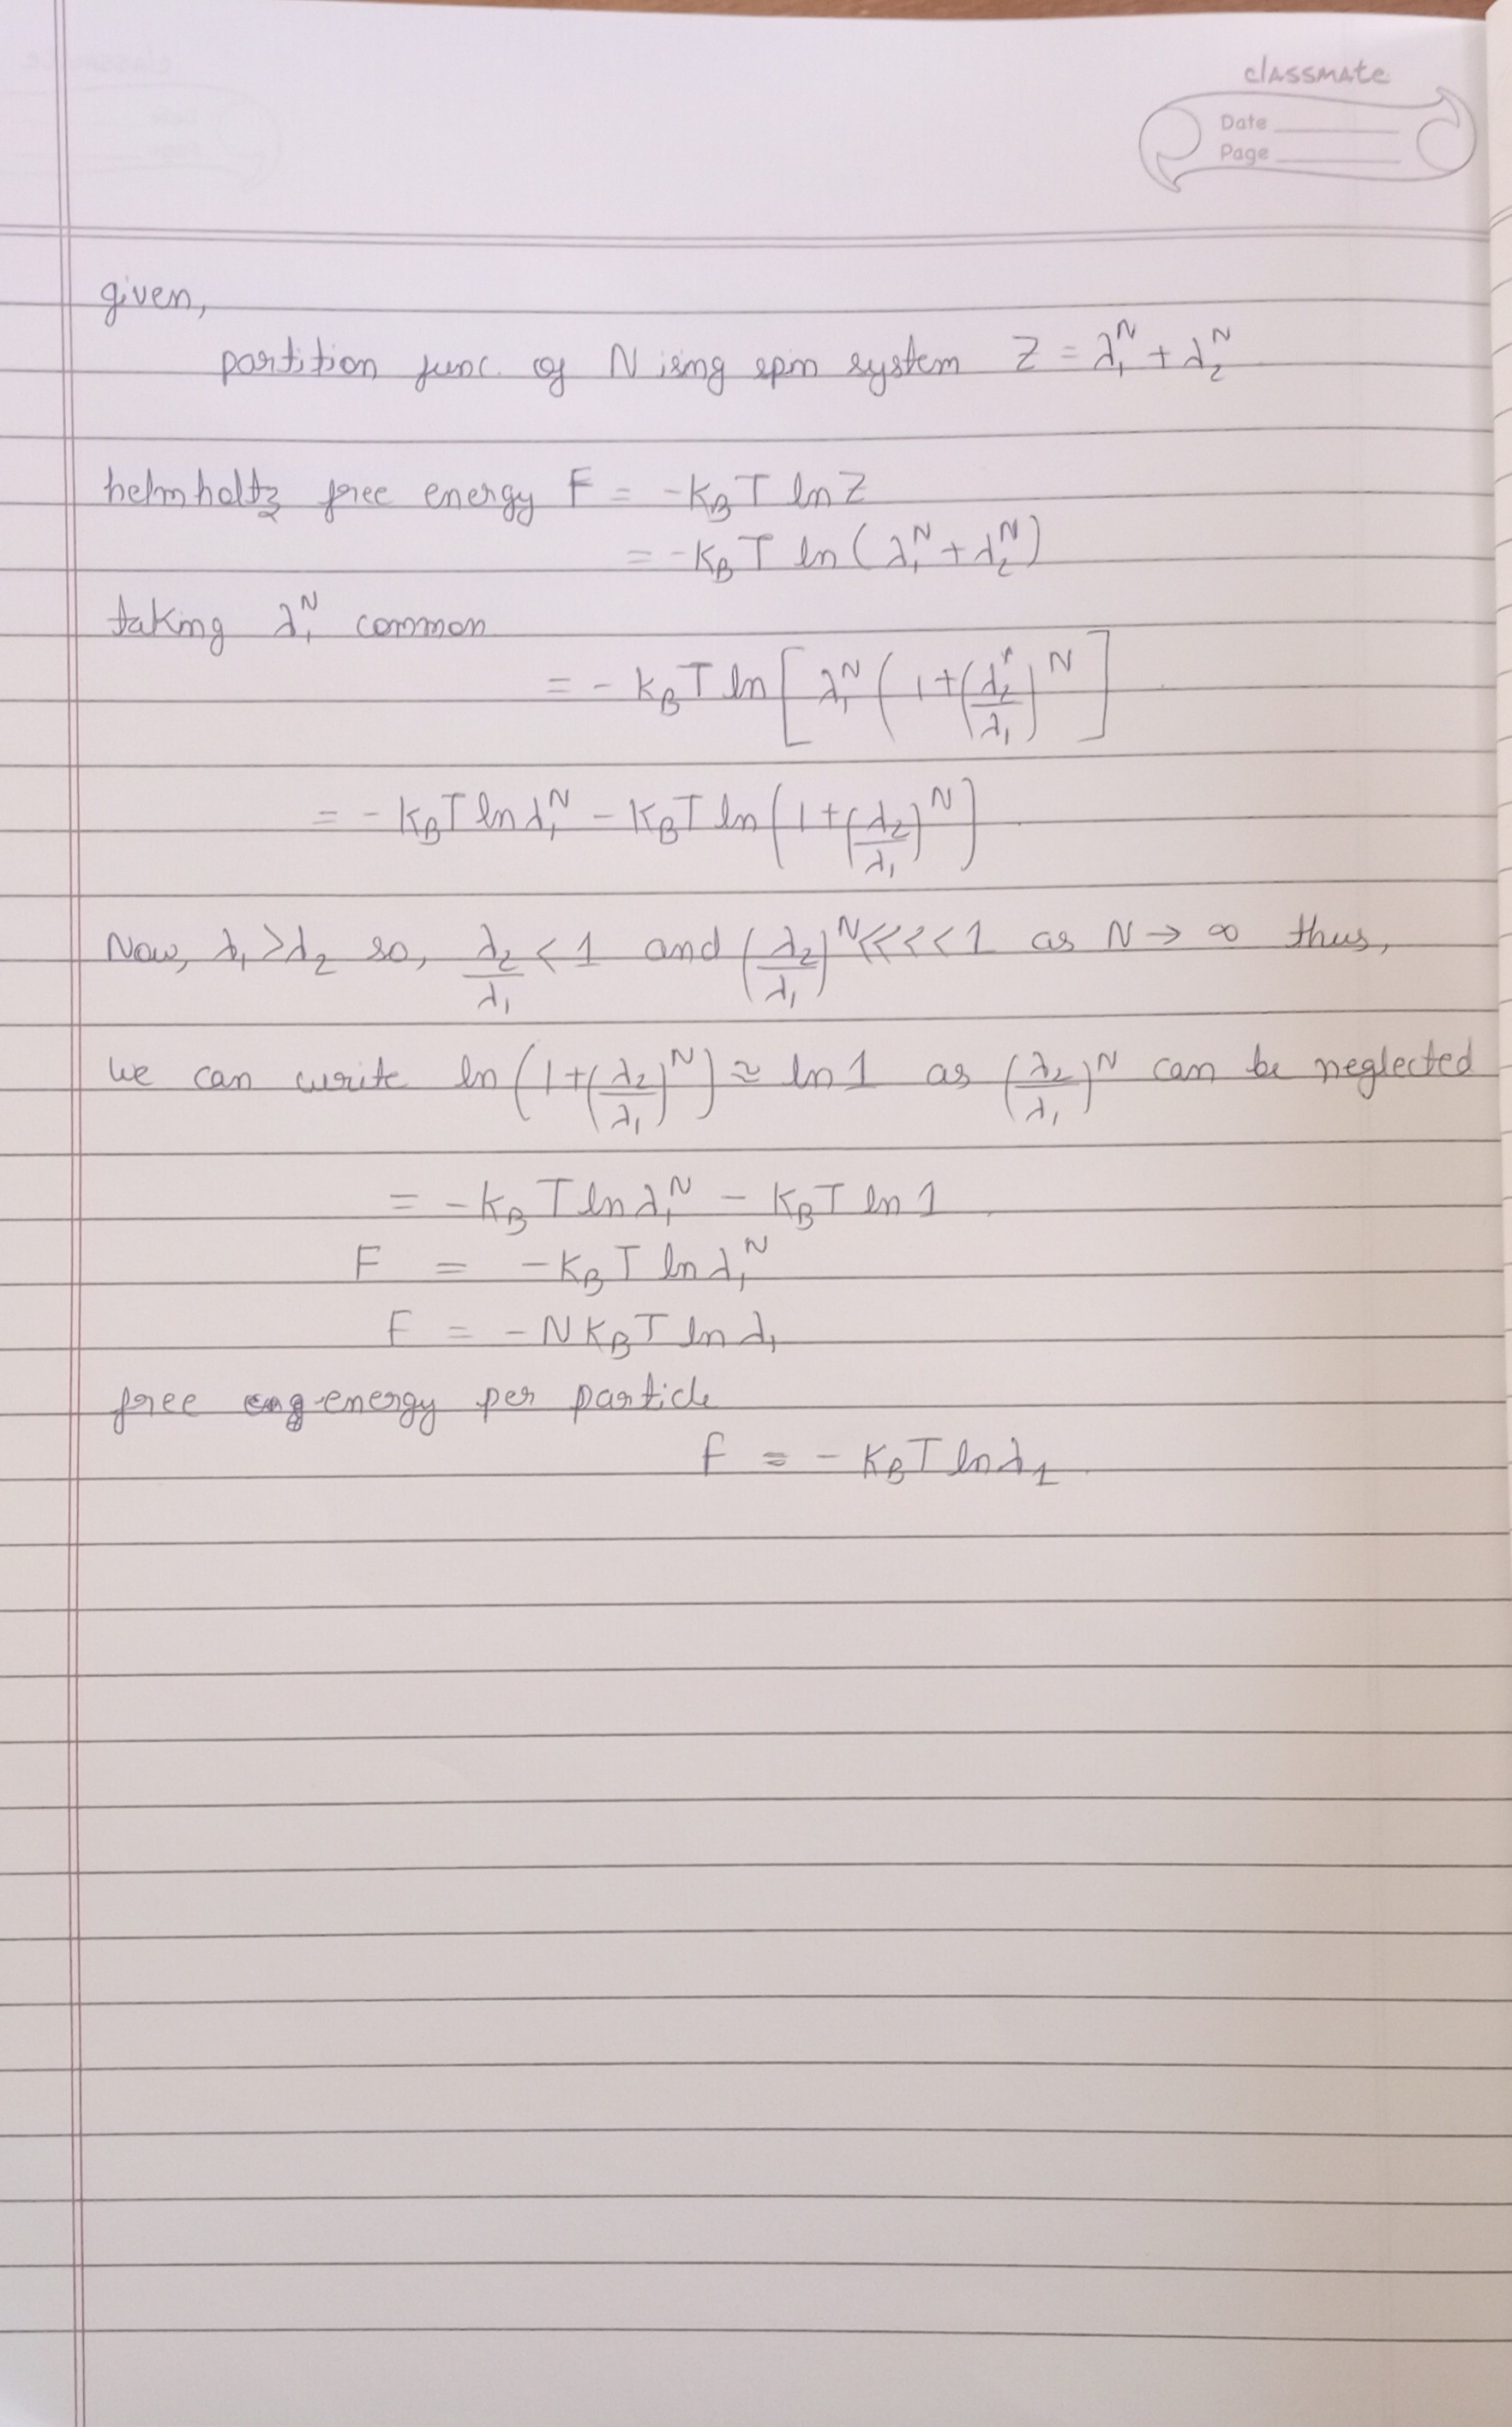 classmate
Date
Page
given,
partition func. of N ising spin system Z = λ₁ᴺ + λ₂ᴺ
helmholtz free energy F = -K_B T ln Z
= -K_B T ln (λ₁ᴺ + λ₂ᴺ)
taking λ₁ᴺ common
= - K_B T ln [ λ₁ᴺ ( 1 + (λ₂/λ₁)ᴺ ]
= - K_B T ln λ₁ᴺ - K_B T ln (1 + (λ₂/λ₁)ᴺ)
Now, λ₁ > λ₂ so, λ₂/λ₁ < 1 and (λ₂/λ₁)ᴺ <<<< 1 as N → ∞ thus,
we can write ln (1 + (λ₂/λ₁)ᴺ) ≈ ln 1 as (λ₂/λ₁)ᴺ can be neglected
= -K_B T ln λ₁ᴺ - K_B T ln 1
F = -K_B T ln λ₁ᴺ
F = - N K_B T ln λ₁
free energy per particle
f = - K_B T ln λ₁